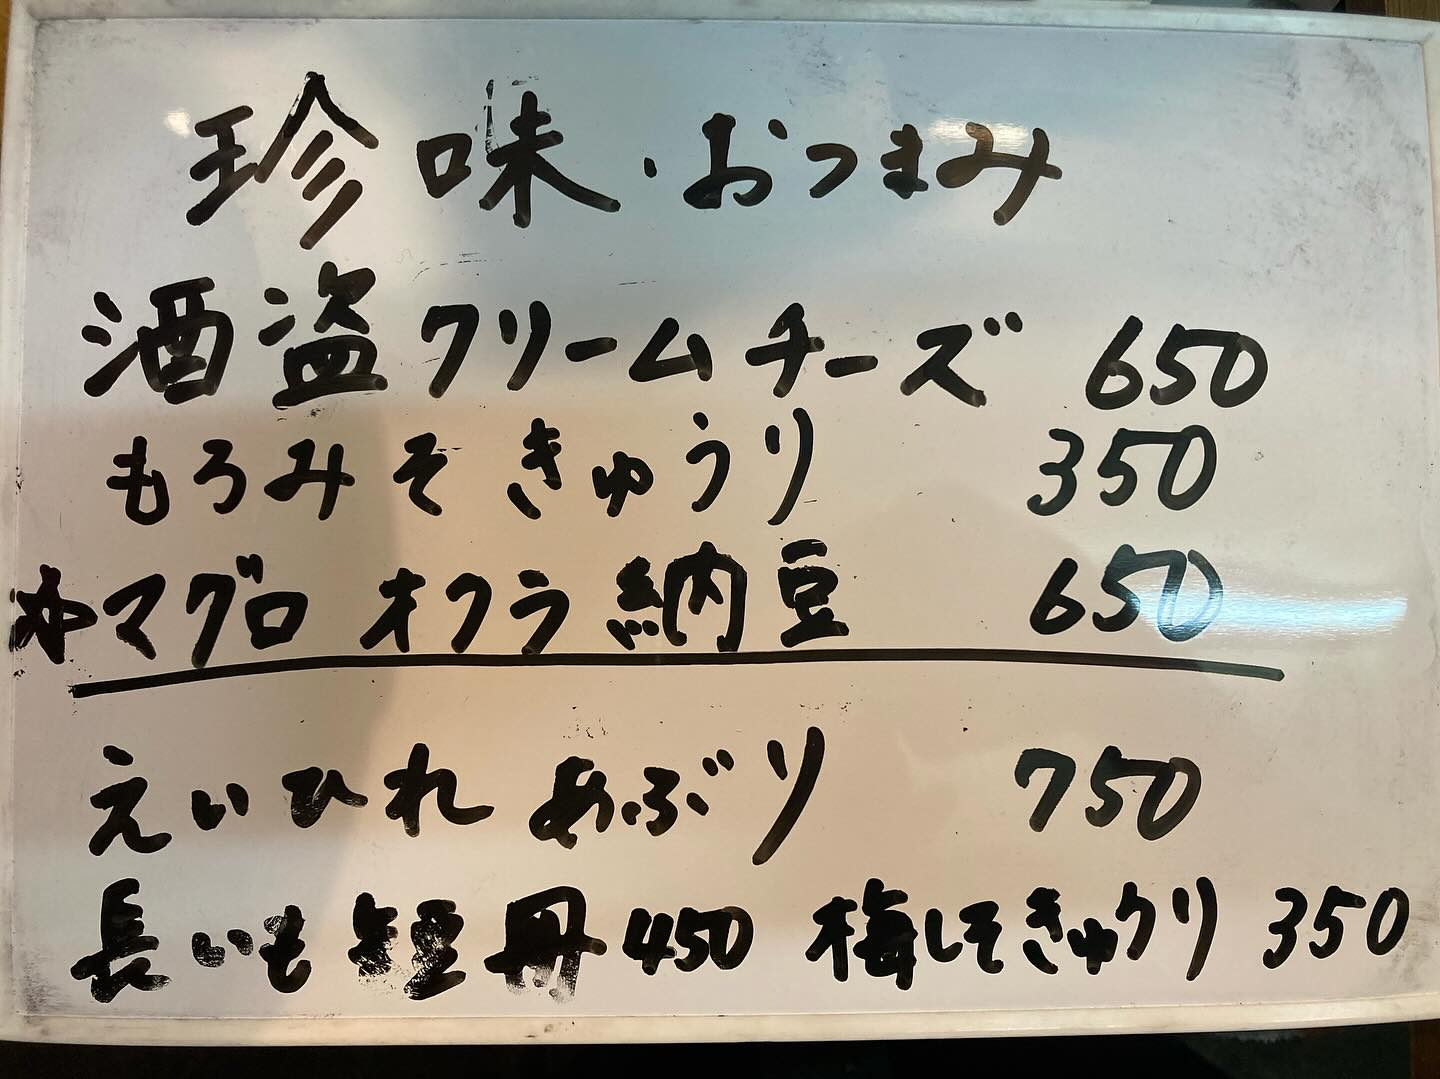 珍味・おつまみ
酒盗クリームチーズ 650
もろみそきゅうり 350
マグロ オクラ納豆 650
えいひれ あぶり 750
長いも短冊 450 梅しそきゅうり 350